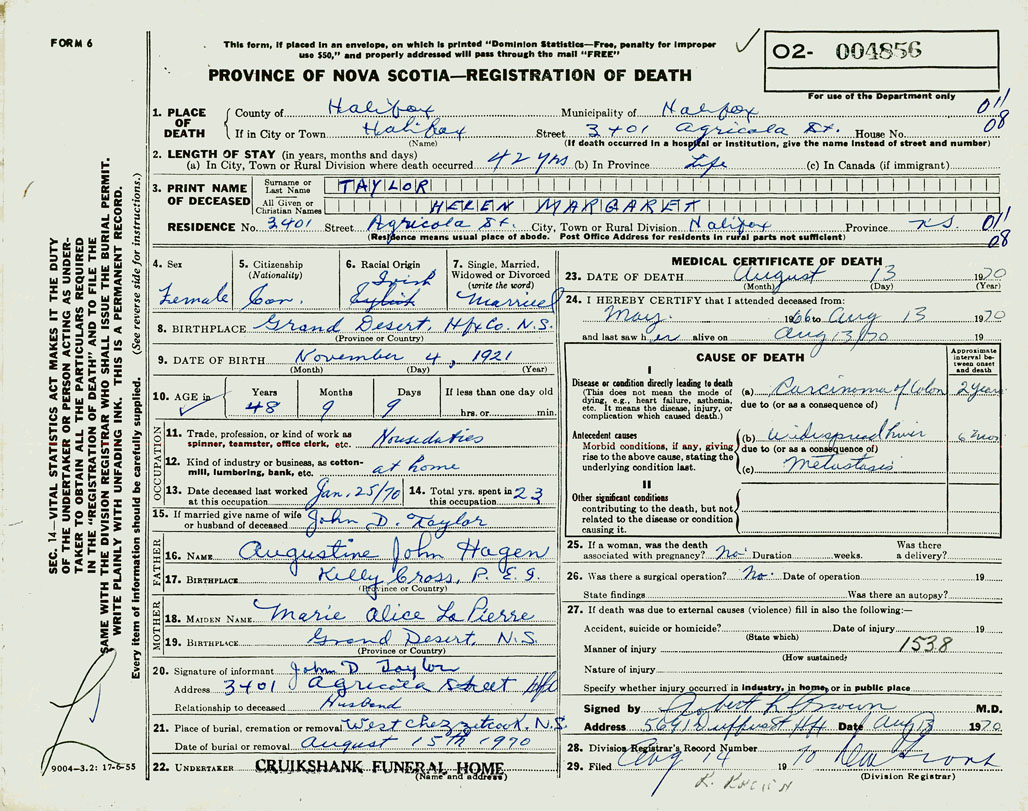 FORM 6
This form, if placed in an envelope, on which is printed "Dominion Statistics—Free, penalty for improper
use $50," and properly addressed will pass through the mail "FREE"
O2- 004856
For use of the Department only
PROVINCE OF NOVA SCOTIA—REGISTRATION OF DEATH
1. PLACE OF DEATH County of Halifax Municipality of Halifax 011
If in City or Town Halifax Street 3401 Agricola St. House No. 08
(Name) (If death occurred in a hospital or institution, give the name instead of street and number)
2. LENGTH OF STAY (in years, months and days)
(a) In City, Town or Rural Division where death occurred 42 yrs (b) In Province Life (c) In Canada (if immigrant)
3. PRINT NAME OF DECEASED Surname or Last Name TAYLOR
All Given or Christian Names HELEN MARGARET
RESIDENCE No. 3401 Street Agricola St. City, Town or Rural Division Halifax Province N.S. 011
(Residence means usual place of abode. Post Office Address for residents in rural parts not sufficient) 08
4. Sex Female
5. Citizenship (Nationality) Can.
6. Racial Origin Irish
7. Single, Married, Widowed or Divorced (write the word) Married
8. BIRTHPLACE Grand Desert, Hfx Co. N.S.
(Province or Country)
9. DATE OF BIRTH November 4, 1921
(Month) (Day) (Year)
10. AGE in Years 48 Months 9 Days 9 If less than one day old hrs. or min.
OCCUPATION
11. Trade, profession, or kind of work as spinner, teamster, office clerk, etc. Houseduties
12. Kind of industry or business, as cotton-mill, lumbering, bank, etc. at home
13. Date deceased last worked at this occupation Jan. 25/70
14. Total yrs. spent in this occupation 23
15. If married give name of wife or husband of deceased John D. Taylor
FATHER
16. NAME Augustine John Hagen
17. BIRTHPLACE Kelly Cross, P.E.I.
(Province or Country)
MOTHER
18. MAIDEN NAME Marie Alice La Pierre
19. BIRTHPLACE Grand Desert, N.S.
(Province or Country)
20. Signature of informant John D Taylor
Address 3401 Agricola Street Hfx
Relationship to deceased Husband
21. Place of burial, cremation or removal West Chezzetcook, N.S.
Date of burial or removal August 15th 1970
22. UNDERTAKER CRUIKSHANK FUNERAL HOME
(Name and address)
MEDICAL CERTIFICATE OF DEATH
23. DATE OF DEATH August 13 1970
(Month) (Day) (Year)
24. I HEREBY CERTIFY that I attended deceased from:
May 1966 to Aug 13 1970
and last saw her alive on Aug 13/70 19
CAUSE OF DEATH
Approximate interval between onset and death
I
Disease or condition directly leading to death
(This does not mean the mode of dying, e.g., heart failure, asthenia, etc. It means the disease, injury, or complication which caused death.)
(a) Carcinoma of Colon 2 Years
due to (or as a consequence of)
Antecedent causes
Morbid conditions, if any, giving rise to the above cause, stating the underlying condition last.
(b) Widespread liver 6 mos.
due to (or as a consequence of)
(c) Metastasis
II
Other significant conditions
contributing to the death, but not related to the disease or condition causing it.
25. If a woman, was the death associated with pregnancy? No. Duration weeks. Was there a delivery?
26. Was there a surgical operation? No. Date of operation 19
State findings Was there an autopsy?
27. If death was due to external causes (violence) fill in also the following:—
Accident, suicide or homicide? Date of injury 19
(State which)
Manner of injury 1538
(How sustained)
Nature of injury
Specify whether injury occurred in industry, in home, or in public place
Signed by Robert L Brown M.D.
Address 5691 Duffus St Hfx Date Aug 13 1970
28. Division Registrar's Record Number
29. Filed Aug 14 1970
(Division Registrar)
SEC. 14—VITAL STATISTICS ACT MAKES IT THE DUTY
OF THE UNDERTAKER OR PERSON ACTING AS UNDER-
TAKER TO OBTAIN ALL THE PARTICULARS REQUIRED
IN THE "REGISTRATION OF DEATH" AND TO FILE THE
SAME WITH THE DIVISION REGISTRAR WHO SHALL ISSUE THE BURIAL PERMIT.
WRITE PLAINLY WITH UNFADING INK. THIS IS A PERMANENT RECORD.
Every item of information should be carefully supplied. (See reverse side for instructions.)
9004-3.2: 17-6-55